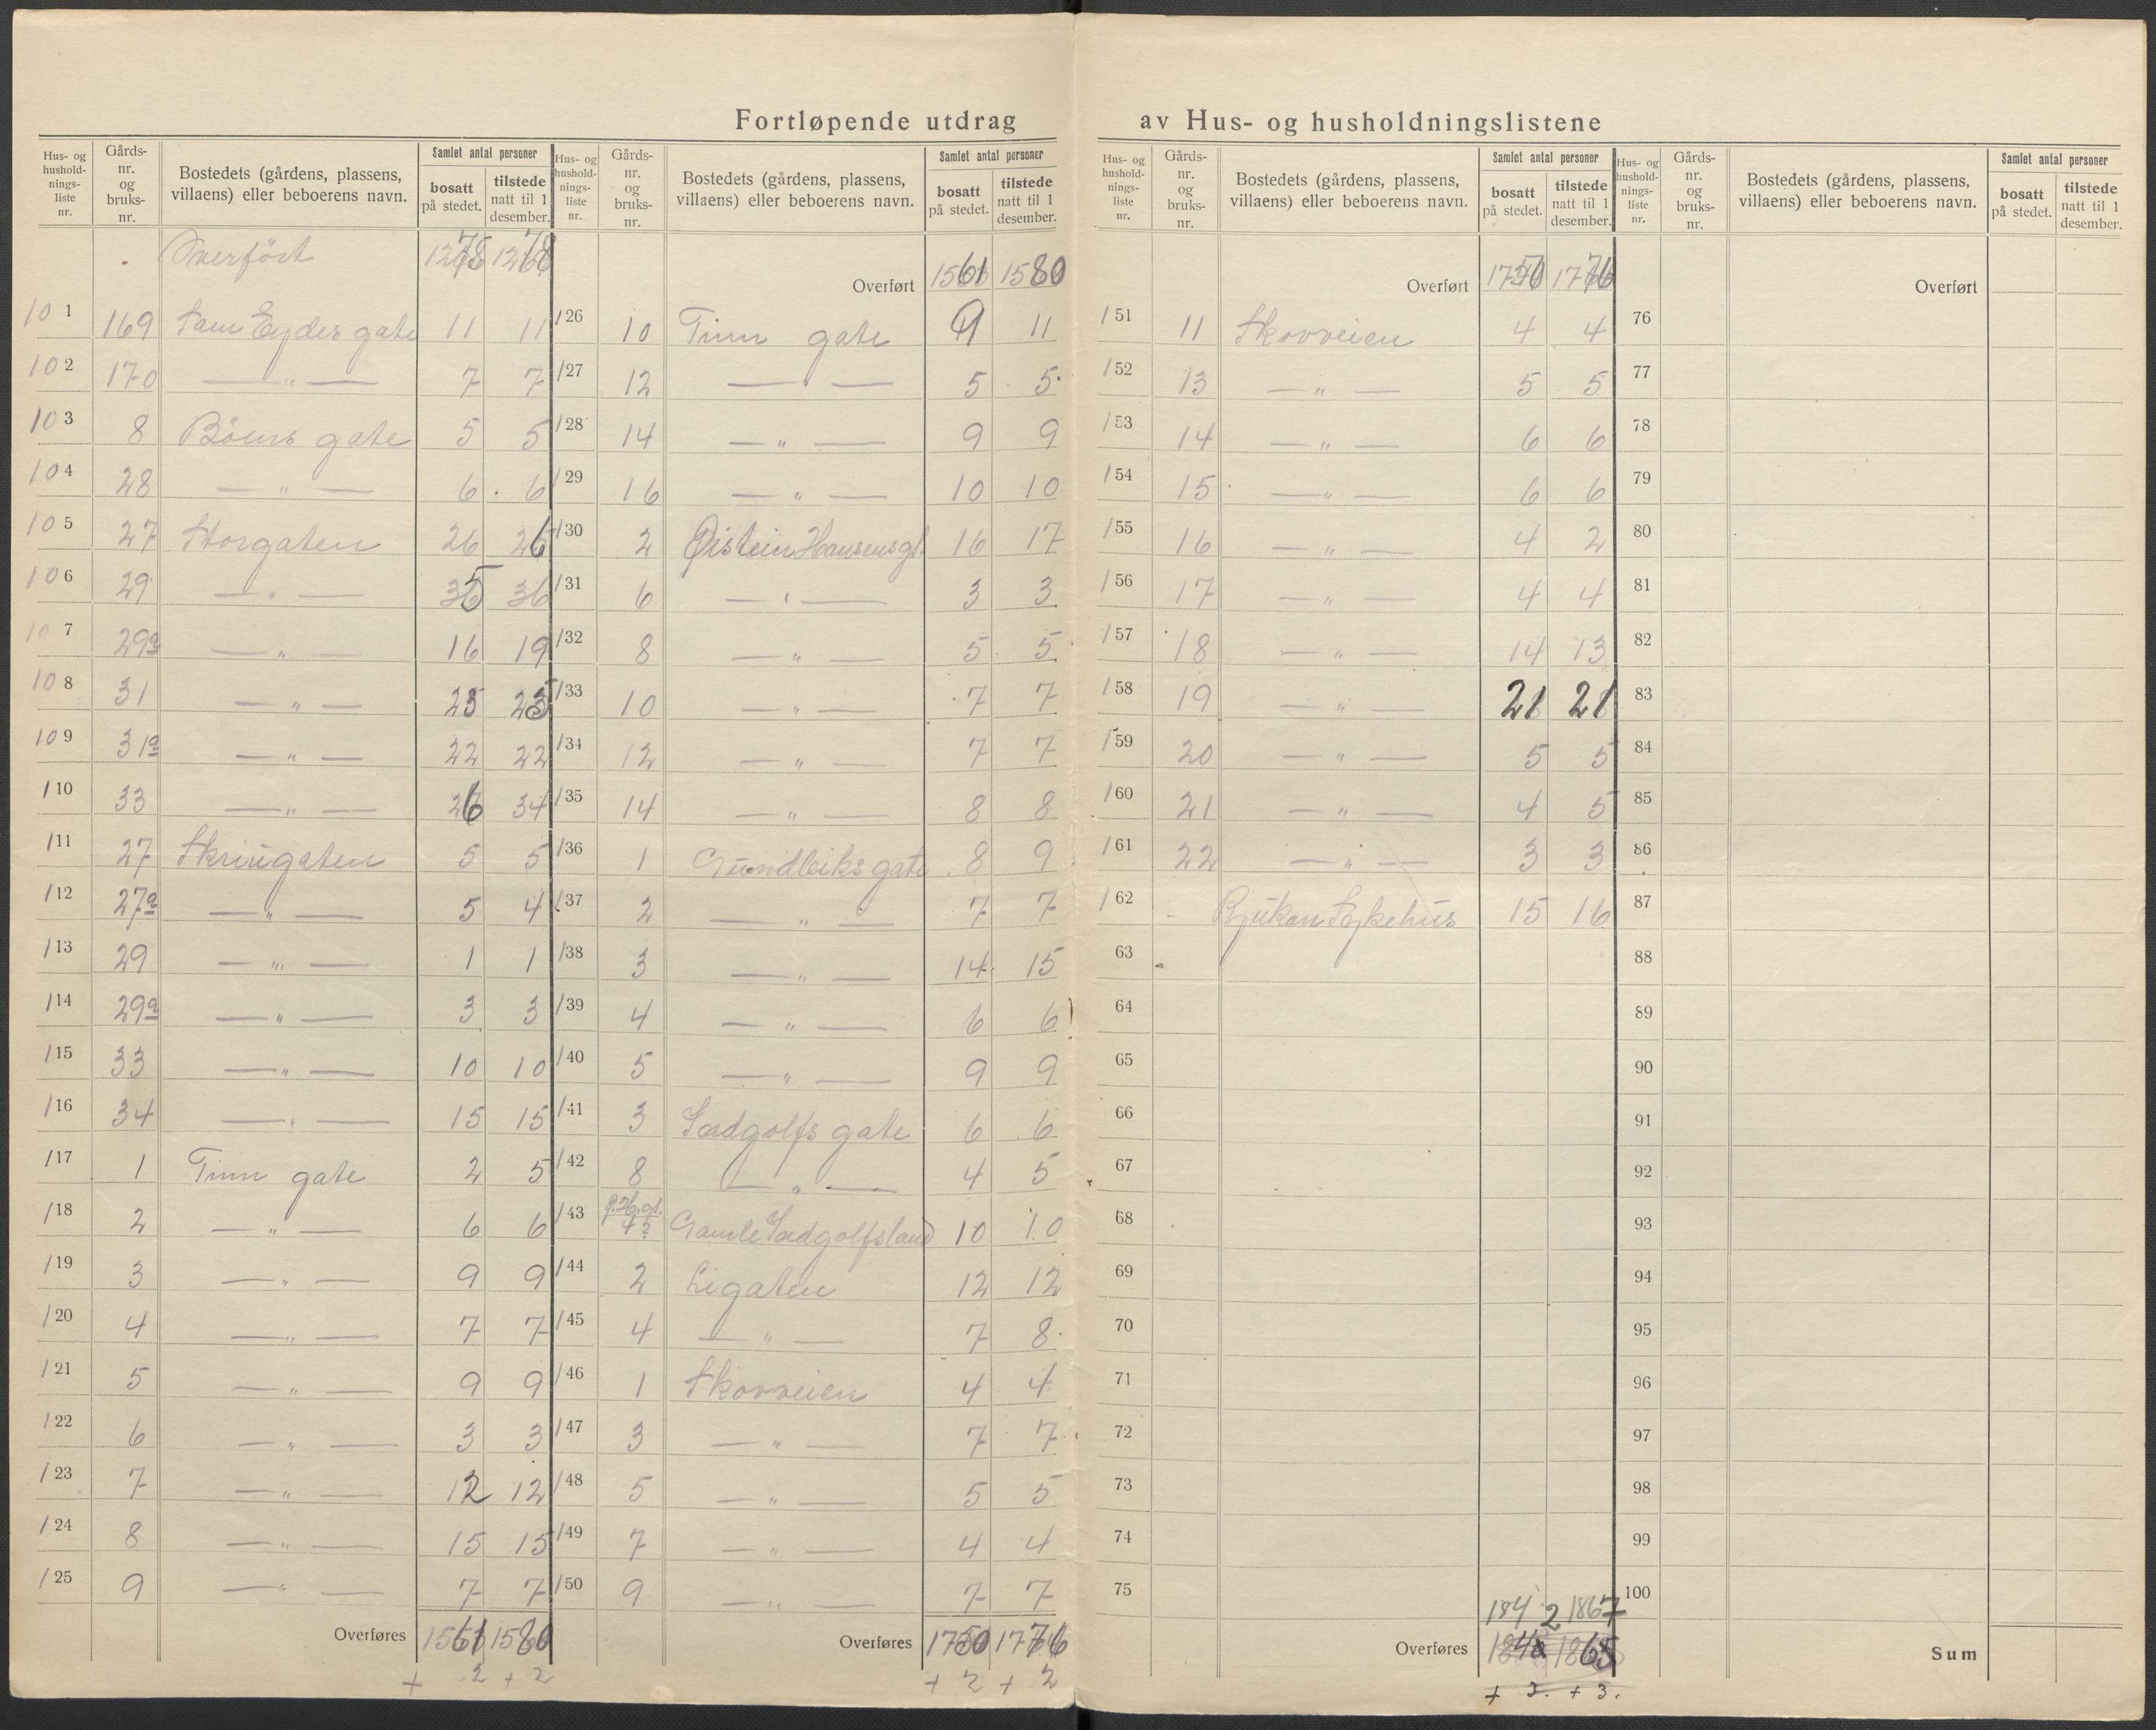 Fortløpende utdrag av Hus- og husholdningslistene
Hus- og husholdnings-liste nr. | Gårds-nr. og bruks-nr. | Bostedets (gårdens, plassens, villaens) eller beboerens navn. | Samlet antal personer | bosatt på stedet. | tilstede natt til 1 desember.
Overført 1278 1278
101 169 Sam Eydes gate 11 11
102 170 — " — 7 7
103 8 Böens gate 5 5
104 28 — " — 6 6
105 27 Storgaten 26 26
106 29 — " — 35 36
107 29a — " — 16 19
108 31 — " — 25 25
109 31a — " — 22 22
110 33 — " — 26 34
111 27 Skriugaten 5 5
112 27a — " — 5 4
113 29 — " — 1 1
114 29a — " — 3 3
115 33 — " — 10 10
116 34 — " — 15 15
117 1 Tinn gate 2 5
118 2 — " — 6 6
119 3 — " — 9 9
120 4 — " — 7 7
121 5 — " — 9 9
122 6 — " — 3 3
123 7 — " — 12 12
124 8 — " — 15 15
125 9 — " — 7 7
Overføres 1561 1580
+ 2 + 2
Hus- og husholdnings-liste nr. | Gårds-nr. og bruks-nr. | Bostedets (gårdens, plassens, villaens) eller beboerens navn. | Samlet antal personer | bosatt på stedet. | tilstede natt til 1 desember.
Overført 1561 1580
126 10 Tinn gate 9 11
127 12 — " — 5 5
128 14 — " — 9 9
129 16 — " — 10 10
130 2 Øistein Hansens gt. 16 17
131 6 — " — 3 3
132 8 — " — 5 5
133 10 — " — 7 7
134 12 — " — 7 7
135 14 — " — 8 8
136 1 Gundleiks gate 8 9
137 2 — " — 7 7
138 3 — " — 14 15
139 4 — " — 6 6
140 5 — " — 9 9
141 3 Sadgolfs gate 6 6
142 8 — " — 4 5
143 4a Gamle Sadgolfsland 10 10
144 2 Ligaten 12 12
145 4 — " — 7 8
146 1 Skovveien 4 4
147 3 — " — 7 7
148 5 — " — 5 5
149 7 — " — 4 4
150 9 — " — 7 7
Overføres 1750 1776
+ 2 + 2
Hus- og husholdnings-liste nr. | Gårds-nr. og bruks-nr. | Bostedets (gårdens, plassens, villaens) eller beboerens navn. | Samlet antal personer | bosatt på stedet. | tilstede natt til 1 desember.
Overført 1750 1776
151 11 Skovveien 4 4
152 13 — " — 5 5
153 14 — " — 6 6
154 15 — " — 6 6
155 16 — " — 4 2
156 17 — " — 4 4
157 18 — " — 14 13
158 19 — " — 21 21
159 20 — " — 5 5
160 21 — " — 4 5
161 22 — " — 3 3
162 - Rjukan Sykehus 15 16
63
64
65
66
67
68
69
70
71
72
73
74
75
1842 1867
Overføres 1865
+ 3. + 3.
Hus- og husholdnings-liste nr. | Gårds-nr. og bruks-nr. | Bostedets (gårdens, plassens, villaens) eller beboerens navn. | Samlet antal personer | bosatt på stedet. | tilstede natt til 1 desember.
Overført
76
77
78
79
80
81
82
83
84
85
86
87
88
89
90
91
92
93
94
95
96
97
98
99
100
Sum